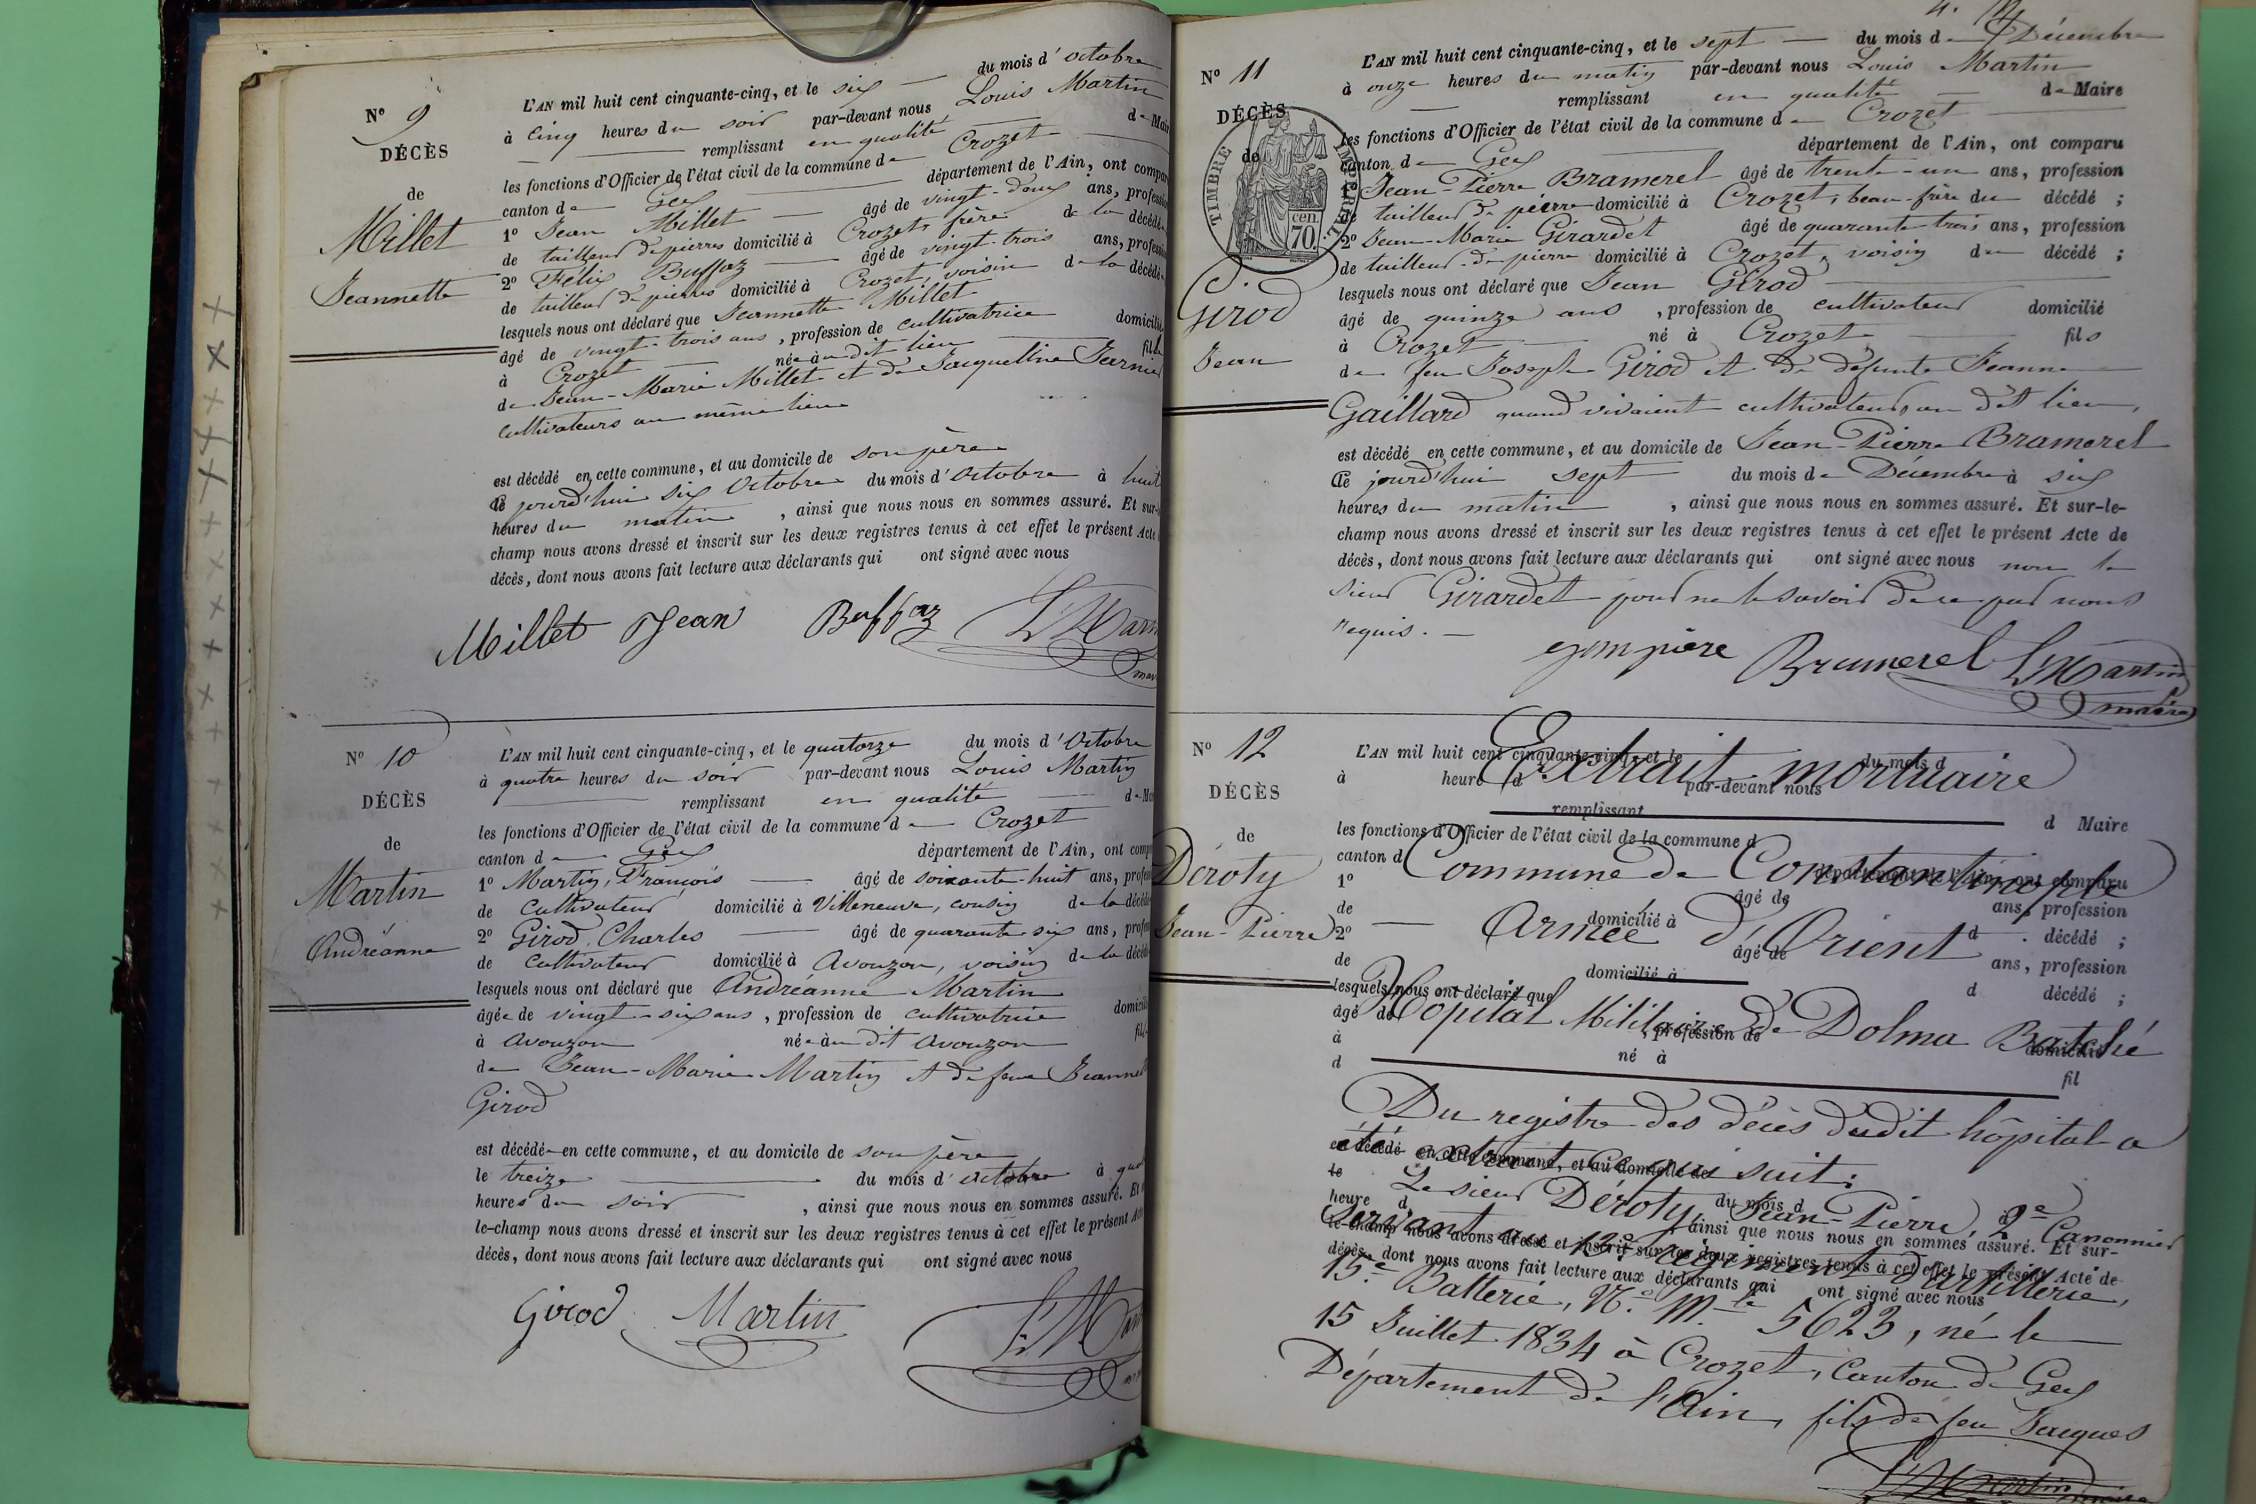 N° 9
DÉCÈS
de
Millet
Jeannette
L'AN mil huit cent cinquante-cinq, et le six du mois d'octobre
à cinq heures du soir par-devant nous Louis Martin
remplissant en qualité de Mair
les fonctions d'Officier de l'état civil de la commune de Crozet
canton de Gex département de l'Ain, ont compar
1° Jean Millet âgé de vingt-deux ans, profession
de tailleur de pierres domicilié à Crozet, frère de la décédée
2° Félix Buffaz âgé de vingt-trois ans, profession
de tailleur de pierres domicilié à Crozet, voisin de la décédée
lesquels nous ont déclaré que Jeannette Millet
âgé de vingt-trois ans, profession de cultivatrice domicilié
à Crozet née au dit lieu fille
de Jean-Marie Millet et de Jacqueline
cultivateurs au même lieu
est décédé en cette commune, et au domicile de son père
ce jourd'hui six Octobre du mois d'Octobre à huit
heures du matin, ainsi que nous nous en sommes assuré. Et sur-
champ nous avons dressé et inscrit sur les deux registres tenus à cet effet le présent Acte
décès, dont nous avons fait lecture aux déclarants qui ont signé avec nous
Millet Jean Buffaz L. Mar
N° 10
DÉCÈS
de
Martin
Andréanne
L'AN mil huit cent cinquante-cinq, et le quatorze du mois d'Octobre
à quatre heures du soir par-devant nous Louis Martin
remplissant en qualité de Ma
les fonctions d'Officier de l'état civil de la commune de Crozet
canton de Gex département de l'Ain, ont comp
1° Martin, François âgé de soixante-huit ans, profes
de cultivateur domicilié à Villeneuve, cousin de la décédé
2° Girod Charles âgé de quarante-six ans, profes
de cultivateur domicilié à Avouzon, voisin de la décédé
lesquels nous ont déclaré que Andréanne Martin
âgée de vingt-six ans, profession de cultivatrice domicili
à Avouzon née au dit Avouzon fil
de Jean-Marie Martin et de feue Jeannet
Girod
est décédée en cette commune, et au domicile de son père
le treize du mois d'octobre à quat
heures du soir, ainsi que nous nous en sommes assuré. Et
le-champ nous avons dressé et inscrit sur les deux registres tenus à cet effet le présent
décès, dont nous avons fait lecture aux déclarants qui ont signé avec nous
Girod Martin L. Mar
N° 11
DÉCÈS
de
TIMBRE IMPÉRIAL
70 cen.
Girod
Jean
L'AN mil huit cent cinquante-cinq, et le sept du mois de Décembre
à onze heures du matin par-devant nous Louis Martin
remplissant en qualité de Maire
les fonctions d'Officier de l'état civil de la commune de Crozet
canton de Gex département de l'Ain, ont comparu
1° Jean-Pierre Bramerel âgé de trente-un ans, profession
de tailleur de pierre domicilié à Crozet, beau-frère du décédé ;
2° Jean-Marie Girardet âgé de quarante trois ans, profession
de tailleur de pierre domicilié à Crozet, voisin du décédé ;
lesquels nous ont déclaré que Jean Girod
âgé de quinze ans, profession de cultivateur domicilié
à Crozet né à Crozet fils
de feu Joseph Girod et de défunte Jeanne
Gaillard quand vivaient cultivateurs au dit lieu,
est décédé en cette commune, et au domicile de Jean-Pierre Bramerel
ce jourd'hui sept du mois de Décembre à six
heures du matin, ainsi que nous nous en sommes assuré. Et sur-le-
champ nous avons dressé et inscrit sur les deux registres tenus à cet effet le présent Acte de
décès, dont nous avons fait lecture aux déclarants qui ont signé avec nous non le
sieur Girardet pour ne le savoir de ce par nous
requis.
Bramerel L. Martin
maire
N° 12
DÉCÈS
de
Déroty
Jean-Pierre
L'AN mil huit cent cinquante-cinq, et le du mois d
Extrait mortuaire
à heure d par-devant nous
remplissant d Maire
les fonctions d'Officier de l'état civil de la commune d
canton d département de l'Ain, ont comparu
Commune de Constantinople
1° âgé de ans, profession
de domicilié à d décédé ;
Armée d'Orient
2° âgé de ans, profession
de domicilié à d décédé ;
lesquels nous ont déclaré que
Hopital Militaire de Dolma Batché
âgé de , profession de domicilié
à né à fil
d
Du registre des décès dudit hôpital a
été extrait ce qui suit :
est décédé en cette commune, et au domicile de
le du mois d à
Le sieur Déroty, Jean-Pierre, 2e Canonnier
heure d , ainsi que nous nous en sommes assuré. Et sur-
servant au 12e régiment d'artillerie,
le-champ nous avons dressé et inscrit sur les deux registres tenus à cet effet le présent Acte de
décès, dont nous avons fait lecture aux déclarants qui ont signé avec nous
15e Batterie, N° Mle 5623, né le
15 Juillet 1834 à Crozet, Canton de Gex
Département de l'Ain, fils de feu Jacques
L. Martin